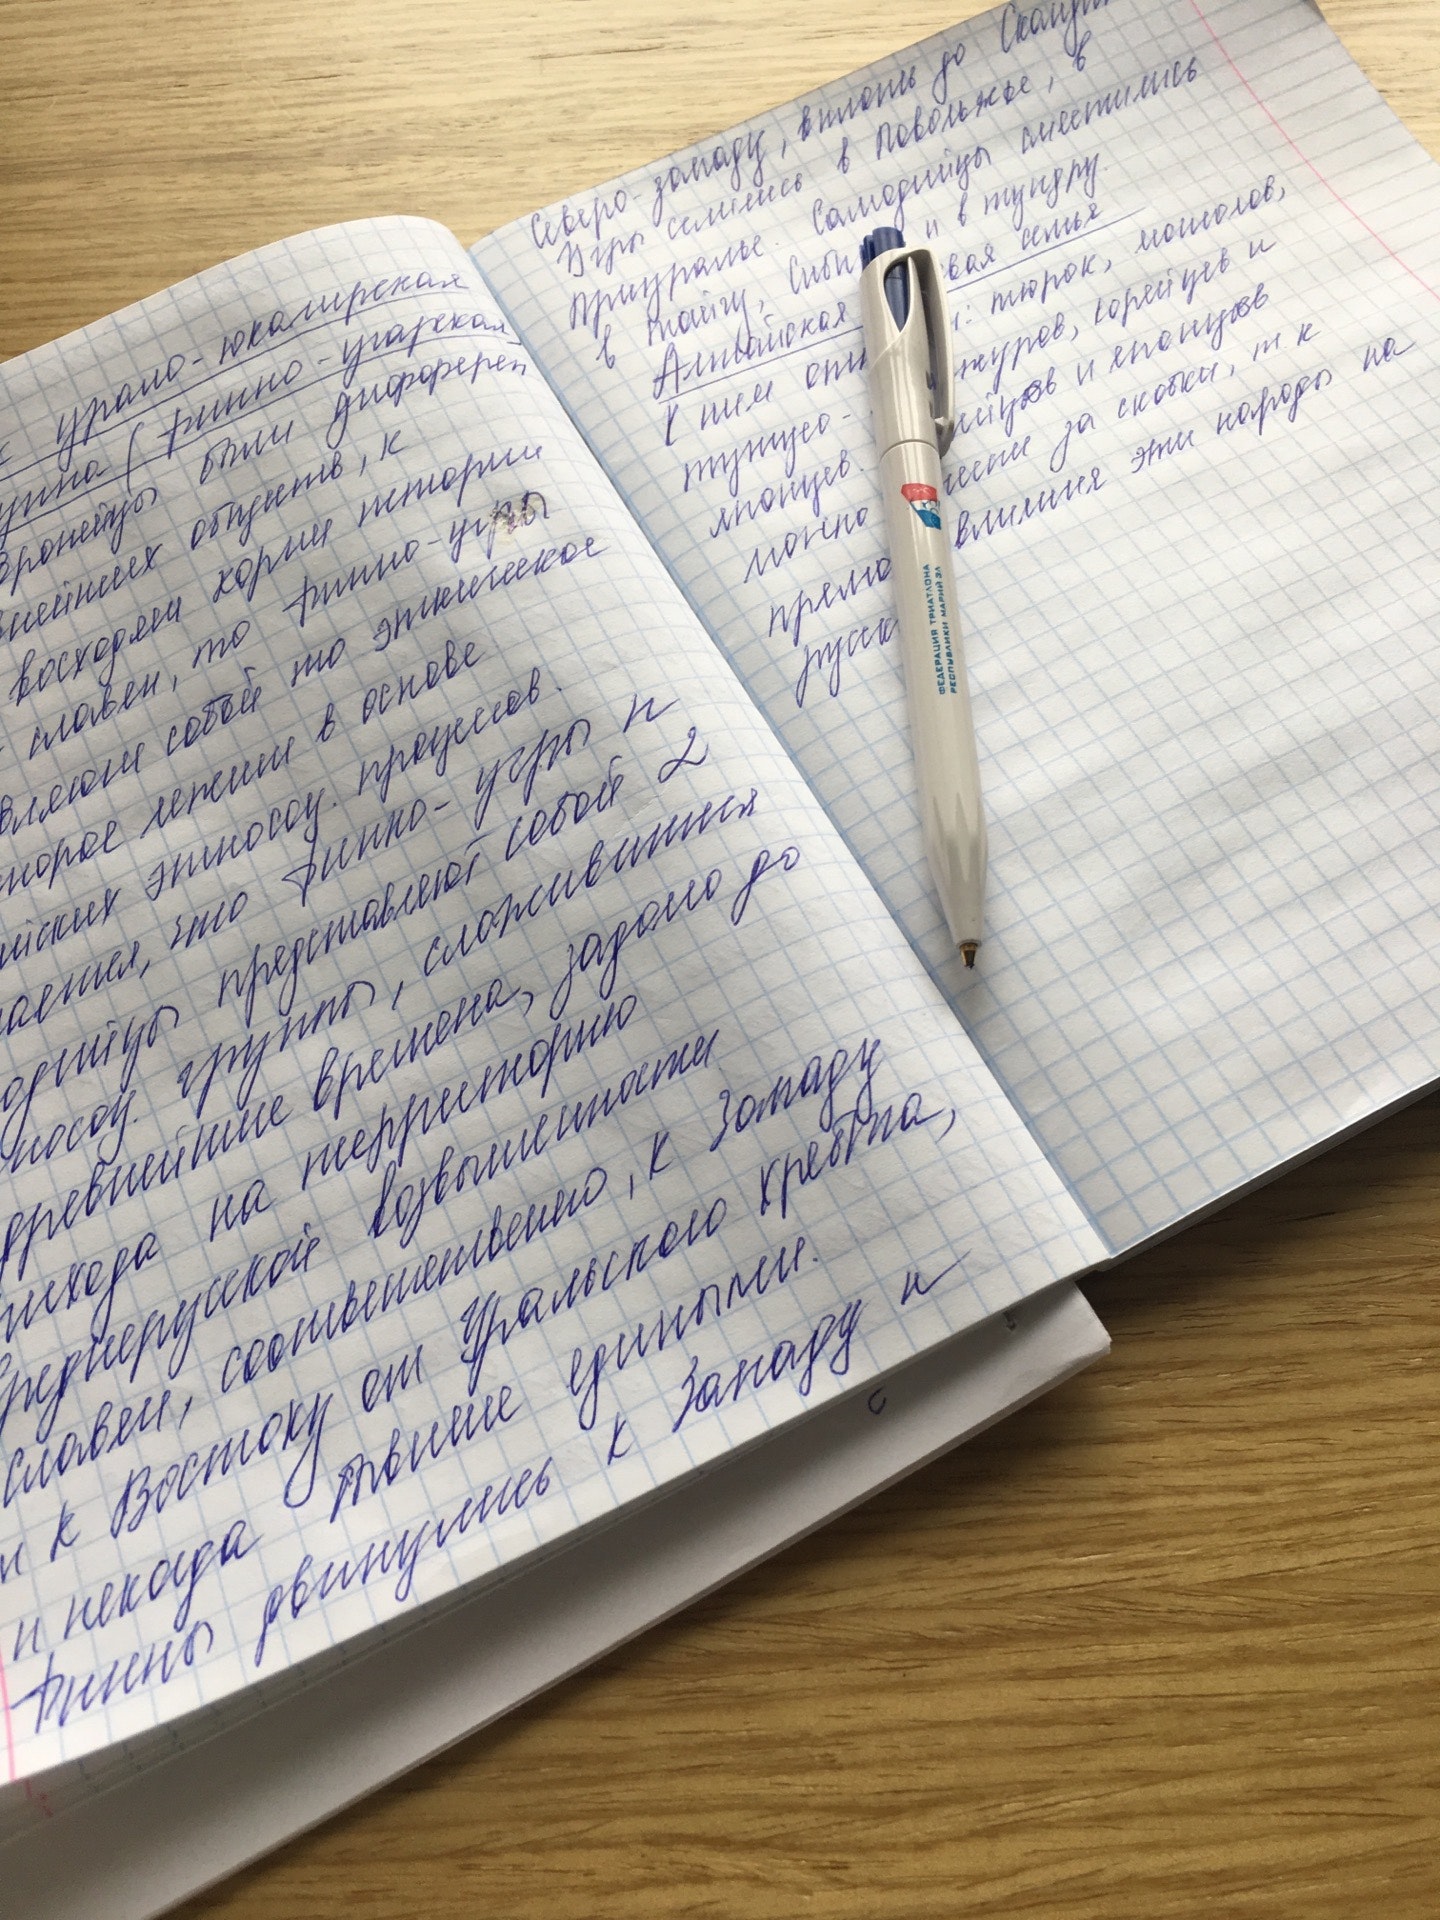 урало-юкагирская
(финно-угорская
были дифферен
внейших общностей, к
восходят корни истории
славян, то финно-угры
вляют собой то этническое
торое лежит в основе
ийских этносоц. процессов.
что финно-угры и
одийцы представляют собой 2
носоц. группы, сложившиеся
древнейшие времена, задолго до
рихода на территорию
среднерусской возвышенности
славян, соответственно, к Западу
и к Востоку от Уральского хребта,
и некогда бывшие едиными.
Финны двинулись к Западу и
Северо-западу, вплоть до Сканди
Угры селились в Поволжье, в
Приуралье. Самодийцы сместились
в тайгу, Сиби и в тундру.
Алтайская вая семья
К ним отн : тюрок, монголов,
тунгусо- журов, корейцев и
японцев. ейцев и японцев
можно вести за скобки, т к
прямо влияния эти народы на
русск
ФЕДЕРАЦИЯ ТРИАТЛОНА
РЕСПУБЛИКИ МАРИЙ ЭЛ